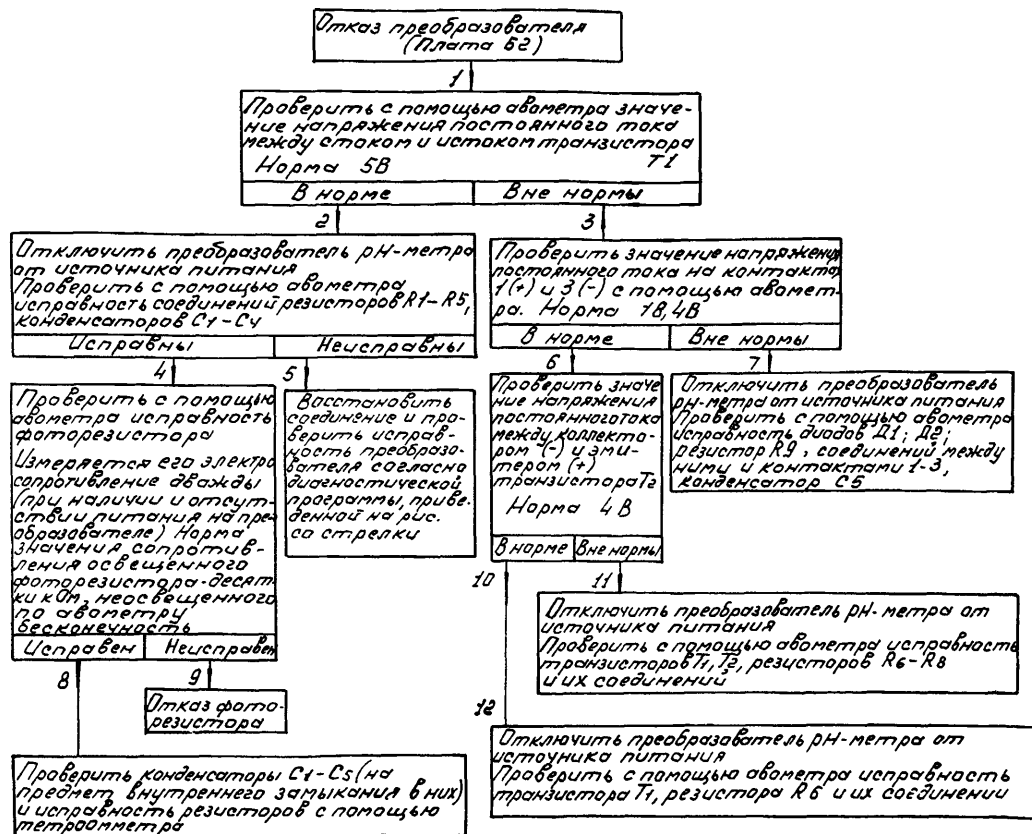 Отказ преобразователя
(Плата Б2)
1
Проверить с помощью авометра значе-
ние напряжения постоянного тока
между стоком и истоком транзистора
Т1
Норма 5В
В норме
Вне нормы
2
3
Отключить преобразователь рН-метра
от источника питания
Проверить с помощью авометра
исправность соединений резисторов R1-R5,
конденсаторов С1-С4
Исправны
Неисправны
Проверить значение напряжени
постоянного тока на контакто
1(+) и 3(-) с помощью авомет-
ра. Норма 18,4В
В норме
Вне нормы
4
5
6
7
Проверить с помощью
авометра исправность
фоторезистора
Измеряется его электро
сопротивление дважды
(при наличии и отсут-
ствии питания на пре
образователе) Норма
значения сопротив-
ления освещенного
фоторезистора-десят
ки кОм, неосвещенного
по авометру
бесконечность
Исправен
Неисправен
Восстановить
соединение и про-
верить исправ-
ность преобразо-
вателя согласно
диагностической
программы, приве-
денной на рис.
со стрелки
Проверить значе
ние напряжения
постоянного тока
между коллекто-
ром (-) и эми-
тером (+)
транзистора Т2
Норма 4В
В норме
Вне нормы
Отключить преобразователь
рН-метра от источника питания
Проверить с помощью авометра
исправность диодов Д1; Д2;
резистор R9, соединений между
ними и контактами 1-3,
конденсатор С5
8
9
10
11
Отказ фото-
резистора
Отключить преобразователь рН-метра от
источника питания
Проверить с помощью авометра исправность
транзисторов Т1, Т2, резисторов R6-R8
и их соединений
12
Проверить конденсаторы С1-С5 (на
предмет внутреннего замыкания в них)
и исправность резисторов с помощью
тетраомметра
Отключить преобразователь рН-метра от
источника питания
Проверить с помощью авометра исправность
транзистора Т1, резистора R6 и их соединении